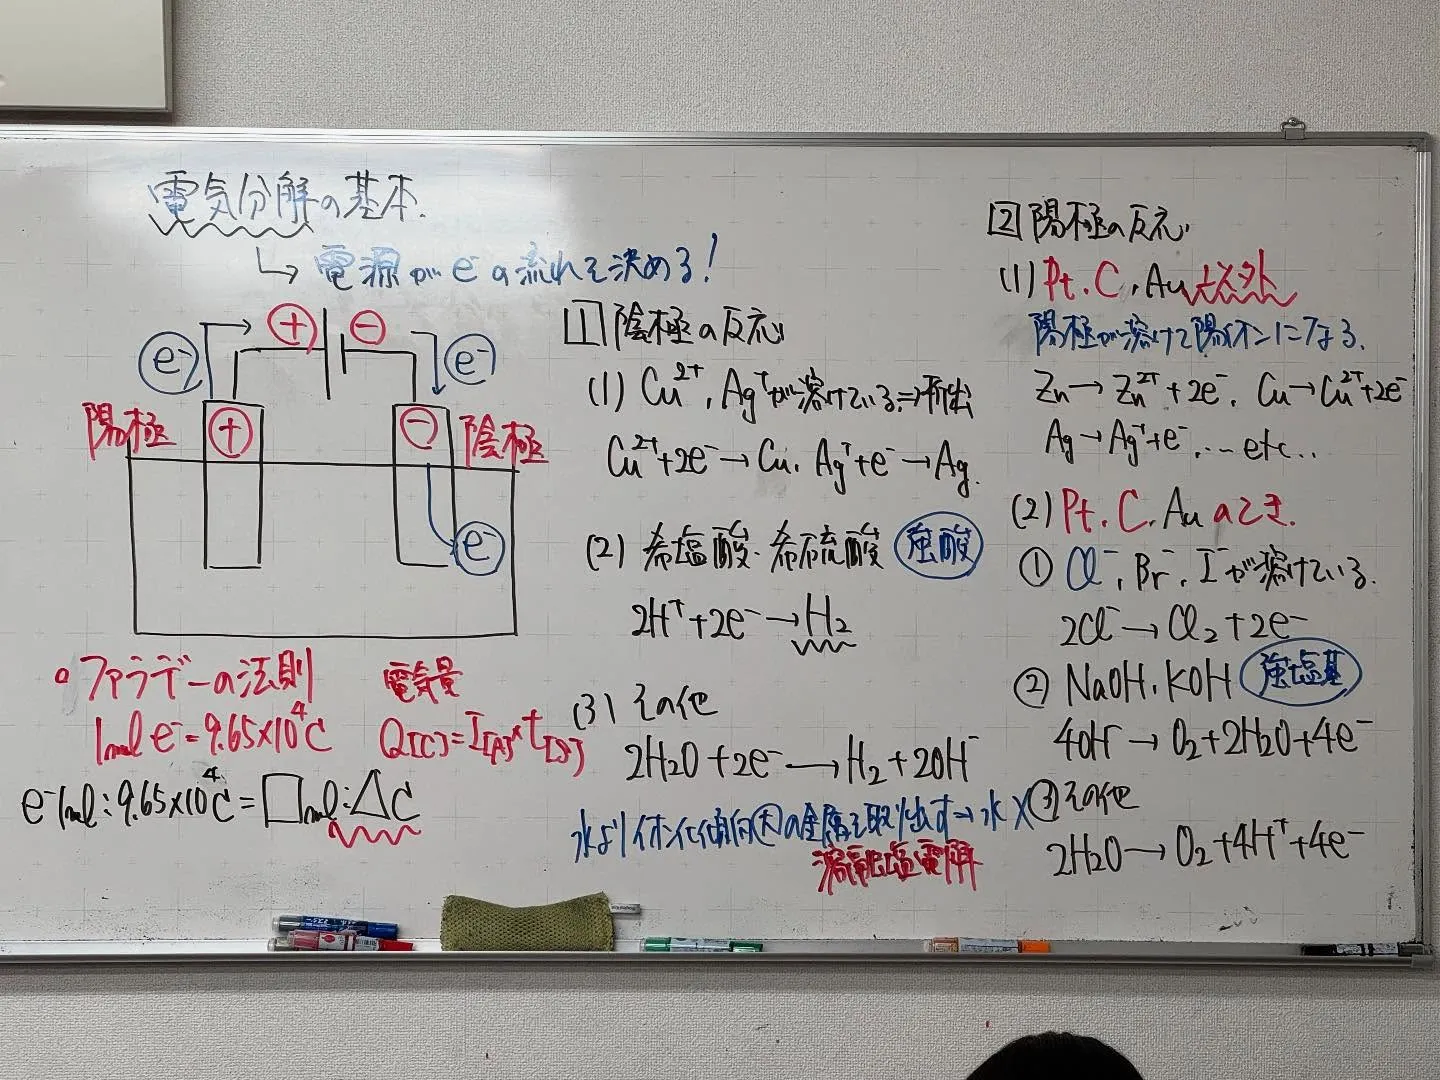 電気分解の基本.
↳ 電源がe⁻の流れを決める!
e⁻ + − e⁻
陽極 + − 陰極
e⁻
ファラデーの法則 電気量
1mol e⁻=9.65×10⁴C Q[C]=I[A]×t[s]
e⁻1mol:9.65×10⁴C=□mol:△C
1 陰極の反応
(1) Cu²⁺, Ag⁺が溶けている⇒析出
Cu²⁺+2e⁻→Cu. Ag⁺+e⁻→Ag.
(2) 希塩酸・希硫酸 強酸
2H⁺+2e⁻→H₂
(3) その他
2H₂O+2e⁻→H₂+2OH⁻
水よりイオン化傾向大の金属を取り出す→水×
溶融塩電解
2 陽極の反応
(1) Pt.C.Au以外
陽極が溶けて陽イオンになる.
Zn→Zn²⁺+2e⁻. Cu→Cu²⁺+2e⁻
Ag→Ag⁺+e⁻,… etc..
(2) Pt.C.Auのとき.
① Cl⁻,Br⁻,I⁻が溶けている.
2Cl⁻→Cl₂+2e⁻
② NaOH.KOH 強塩基
4OH⁻→O₂+2H₂O+4e⁻
③ その他
2H₂O→O₂+4H⁺+4e⁻